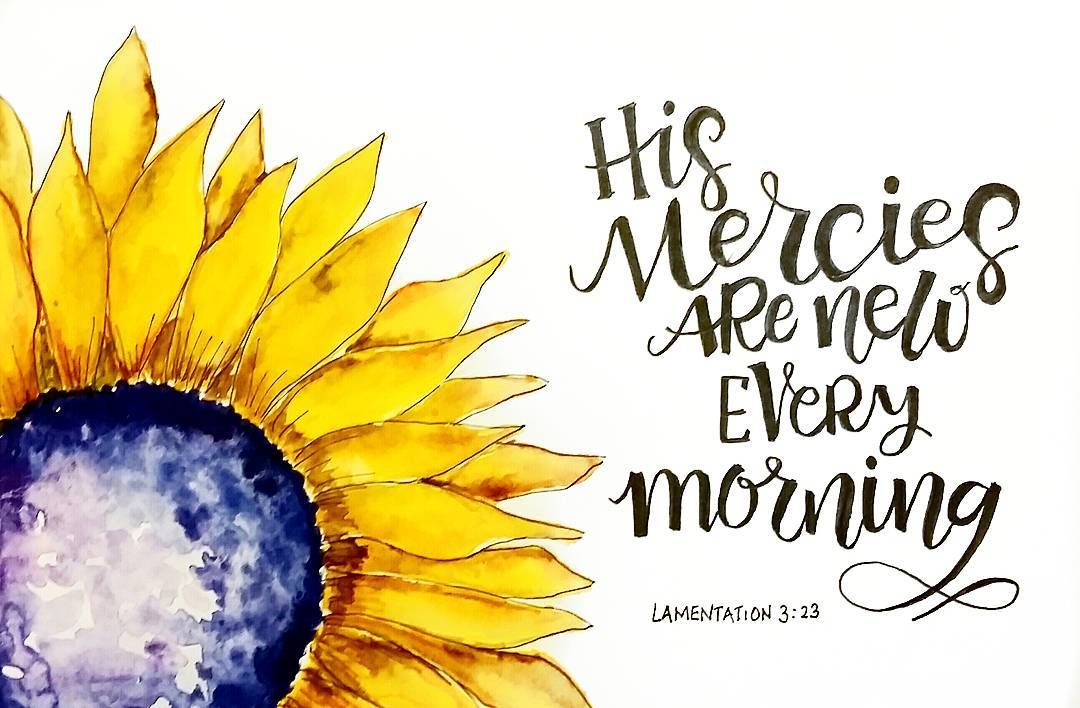 His
Mercies
ARe new
EVeRy
morning
LAMENTATION 3:23